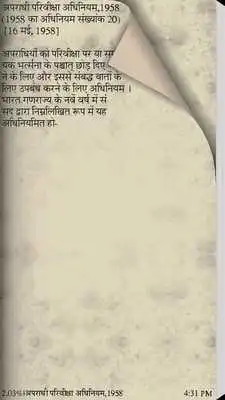 अपराधी परिवीक्षा अधिनियम,1958
(1958 का अधिनियम संख्यांक 20)
[16 मई, 1958]
अपराधियों को परिवीक्षा पर या सम्
यक भर्त्सना के पश्चात् छोड़ दिए
ने के लिए और इससे संबद्ध बातों के
लिए उपबंध करने के लिए अधिनियम ।
भारत गणराज्य के नवें वर्ष में सं
सद द्वारा निम्नलिखित रूप में यह
अधिनियमित हो-
2.03% अपराधी परिवीक्षा अधिनियम,1958 4:31 PM